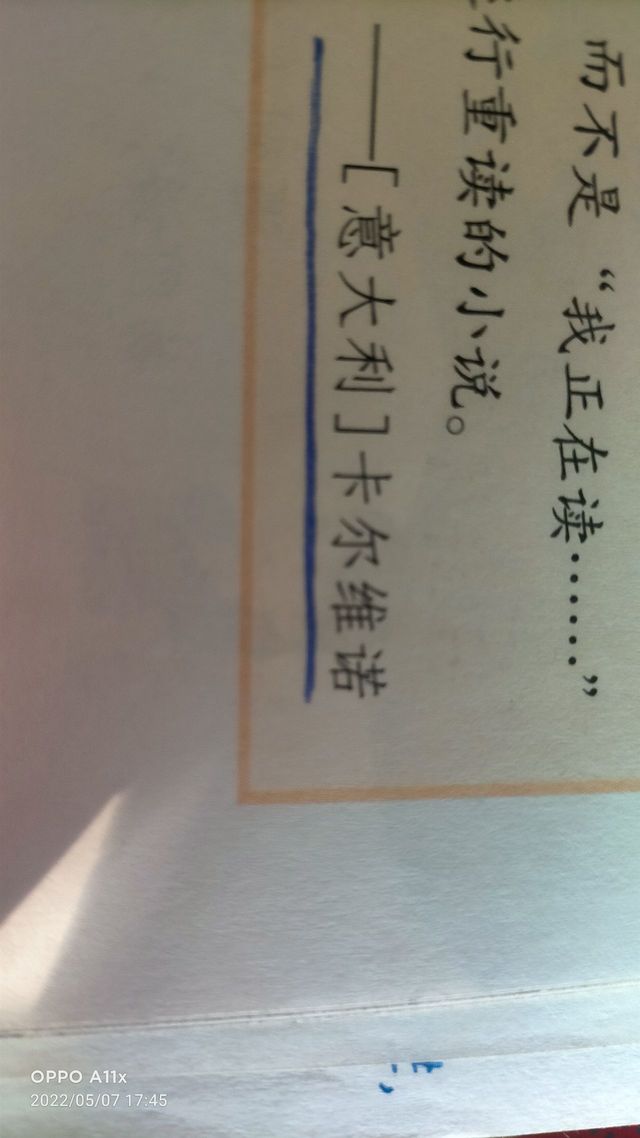 而不是“我正在读……”
行重读的小说。
——[意大利]卡尔维诺
OPPO A11x
2022/05/07 17:45